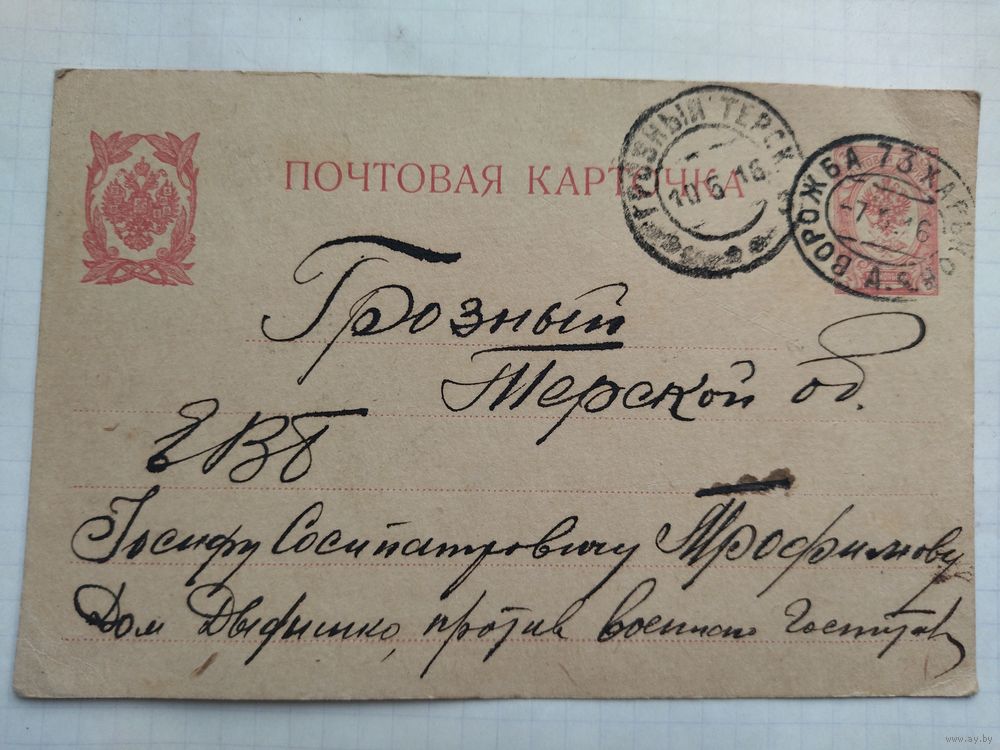 ПОЧТОВАЯ КАРТОЧКА
ГРОЗНЫЙ ТЕРСК
10 5 16
ВОРОЖБА 73 ХАРЬКО
-7 5 16
Грозный
Терской об.
ЕВБ
Иосифу Сосипатровичу Трофимову
Дом против военного
www.ay.by